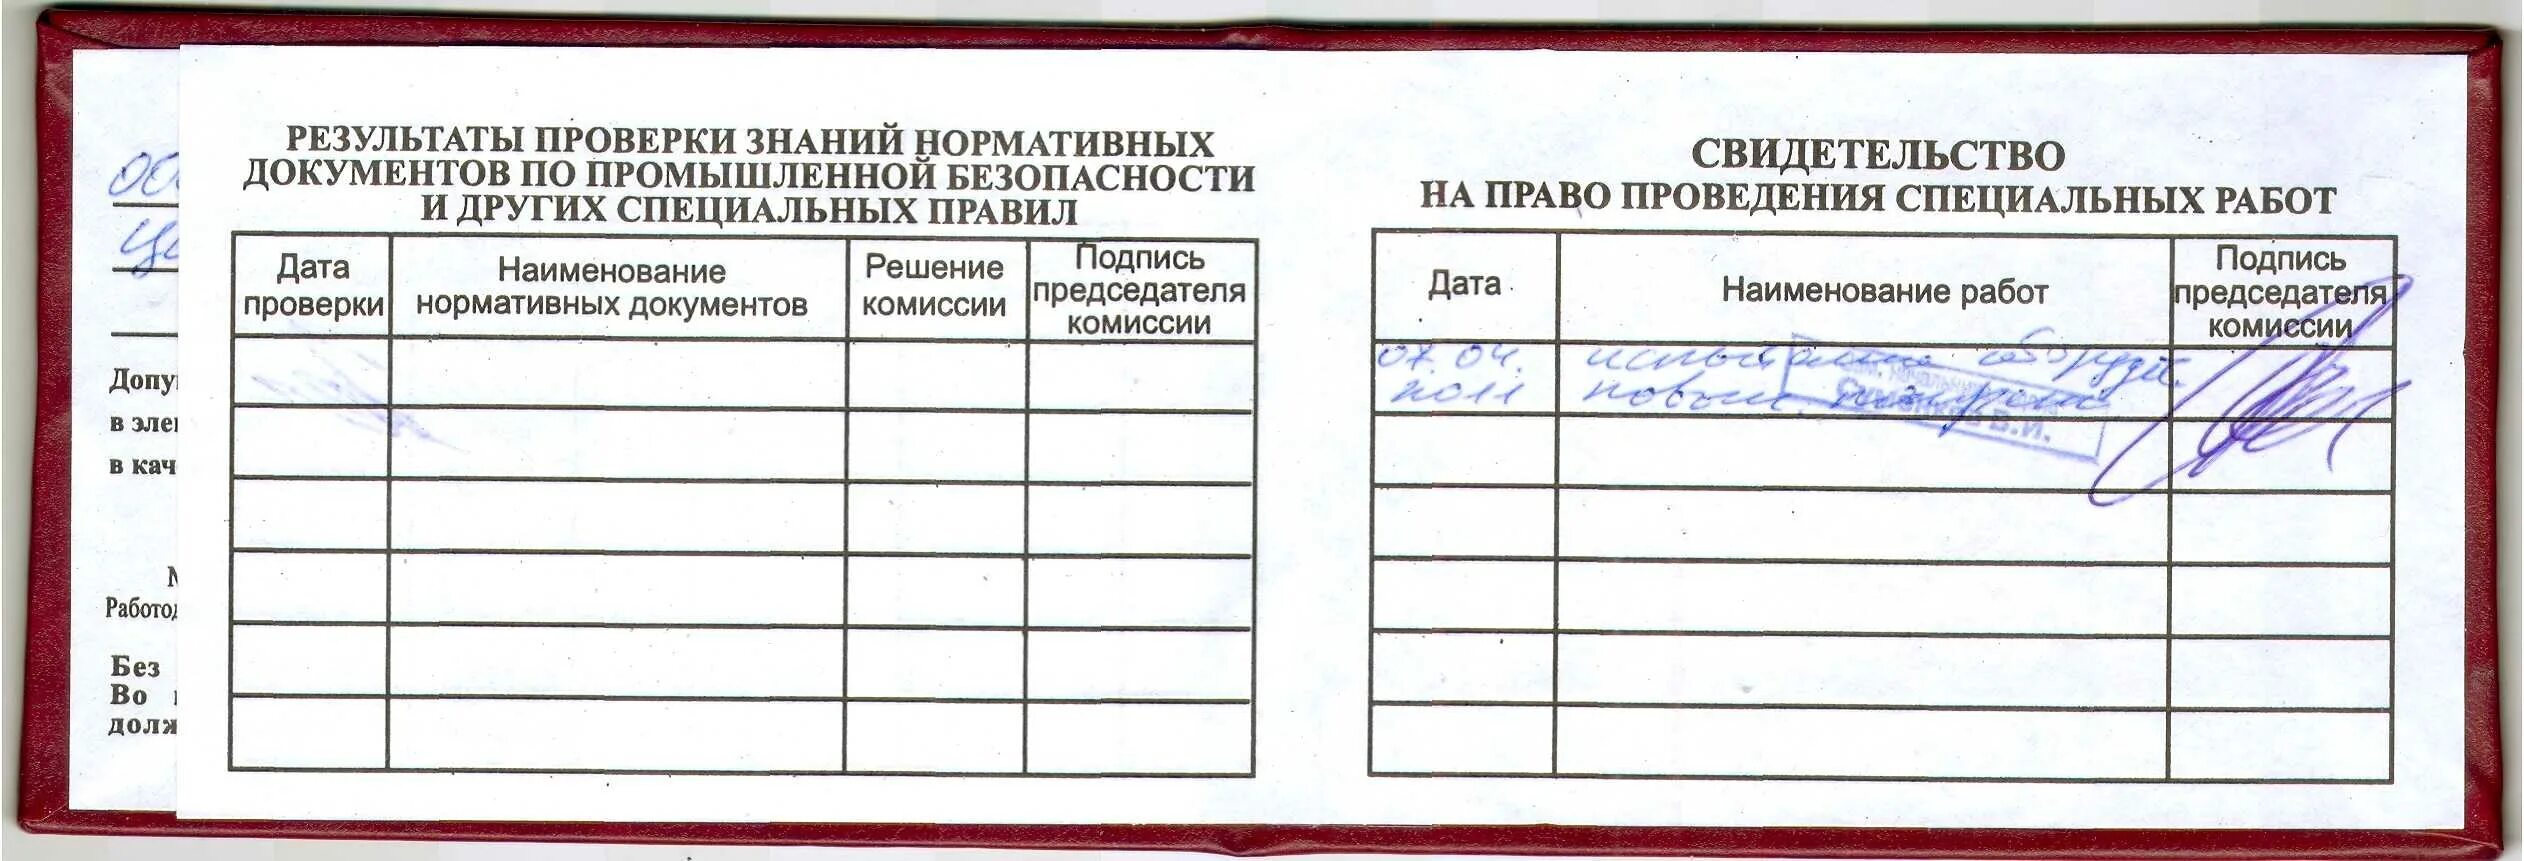 Допу
в эле
в кач
Работо
Без
Во
долж
РЕЗУЛЬТАТЫ ПРОВЕРКИ ЗНАНИЙ НОРМАТИВНЫХ
ДОКУМЕНТОВ ПО ПРОМЫШЛЕННОЙ БЕЗОПАСНОСТИ
И ДРУГИХ СПЕЦИАЛЬНЫХ ПРАВИЛ
Дата проверки
Наименование нормативных документов
Решение комиссии
Подпись председателя комиссии
СВИДЕТЕЛЬСТВО
НА ПРАВО ПРОВЕДЕНИЯ СПЕЦИАЛЬНЫХ РАБОТ
Дата
Наименование работ
Подпись
председателя
комиссии
07.04.
2011
В.И.